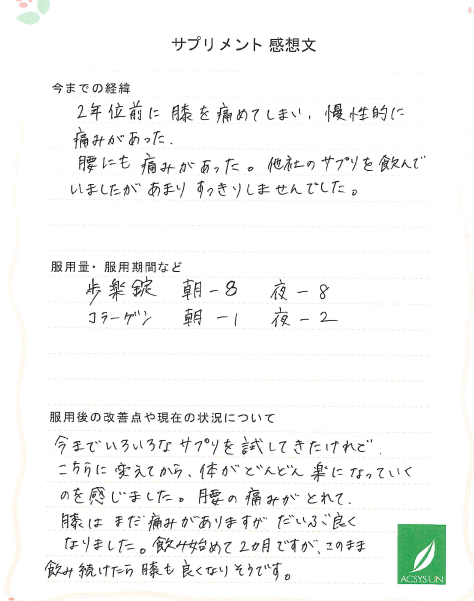 サプリメント 感想文
今までの経緯
2年位前に 膝を痛めてしまい、慢性的に
痛みがあった.
腰にも 痛みがあった。他社のサプリを飲んで
いましたが あまり すっきりしませんでした。
服用量・服用期間など
歩楽錠 朝－8 夜－8
コラーゲン 朝－1 夜－2
服用後の改善点や現在の状況について
今までいろいろな サプリを試してきたけれど、
こちらに 変えてから、体がどんどん 楽になっていく
のを感じました。腰の痛みがとれて、
膝は まだ痛みがありますが だいぶ良く
なりました。飲み始めて2カ月ですが、このまま
飲み続けたら膝も良くなりそうです。
ACSYSUN